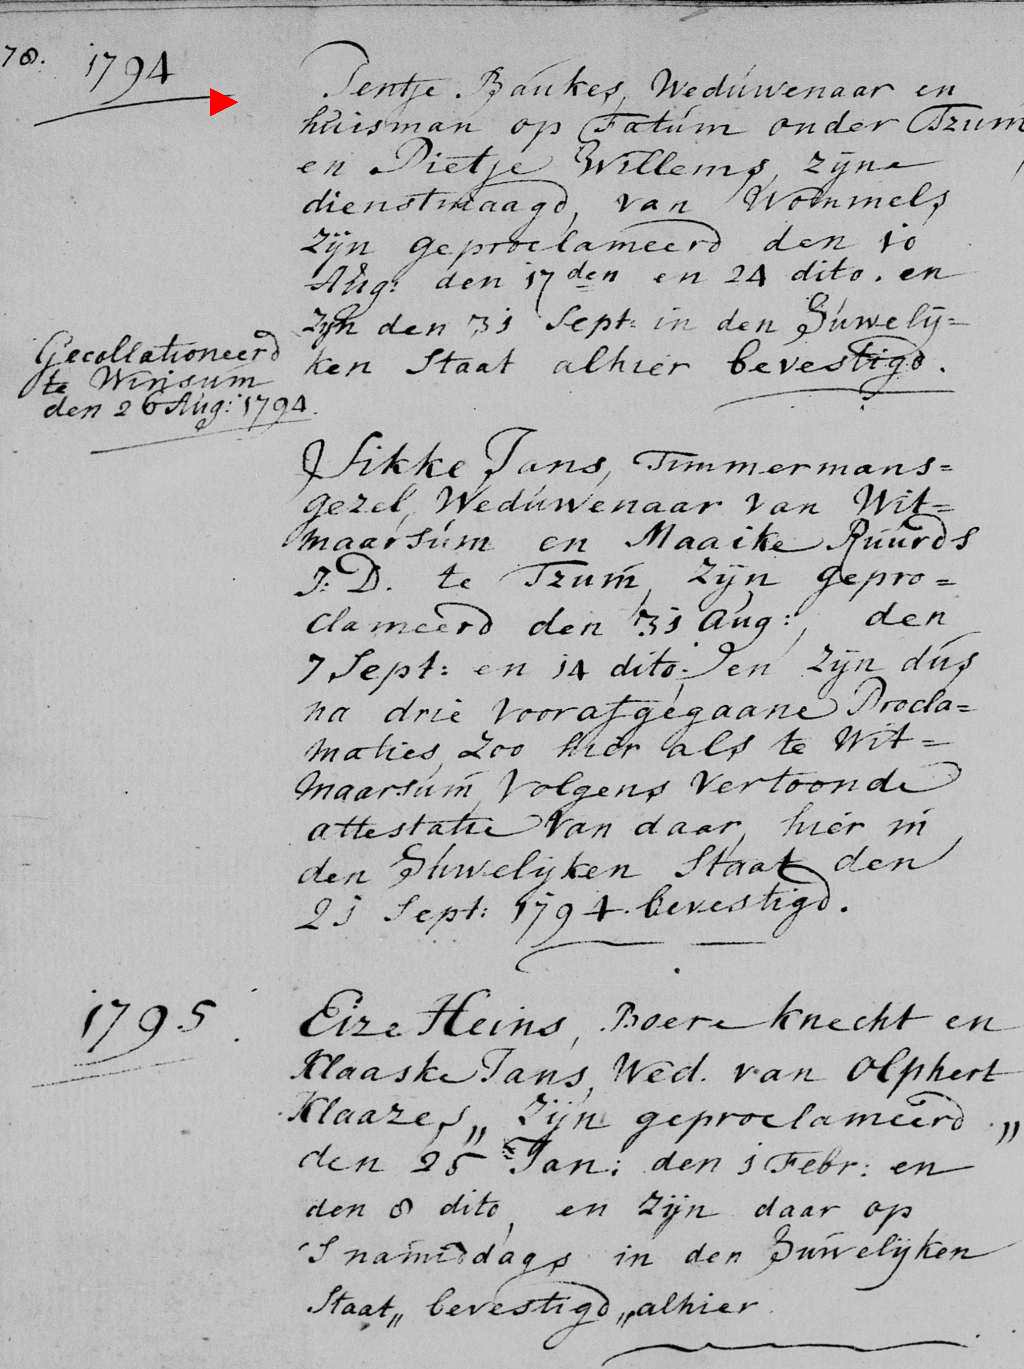 78.
1794
Pentje Baukes, Weduwenaar en
huisman op Fatum onder Tzum
en Pietje Willems, zijne
dienstmaagd, van Wommels,
zijn geproclameerd den 10
Aug: den 17den en 24 dito. en
zijn den 31 Sept: in den Huwelij=
ken Staat alhier bevestigd.
Gecollationeerd
te Winsum
den 26 Aug: 1794.
Sikke Jans, Timmermans=
gezel, Weduwenaar van Wit=
maarsum en Maaike Ruurds
J: D. te Tzum, zijn gepro=
clameerd den 31 Aug:, den
7 Sept: en 14 dito; en zijn dus
na drie voorafgegaane Procla=
maties, zoo hier als te Wit=
maarsum, volgens vertoonde
attestatie van daar, hier in
den Huwelijken Staat den
21 Sept: 1794. bevestigd.
1795
Eize Heins, Boere knecht en
Klaaske Jans, Wed. van Olphert
Klaazes,, zijn geproclameerd ,,
den 25 Jan: den 1 Febr: en
den 8 dito, en zijn daar op
'S namiddags in den Huwelijken
Staat,, bevestigd,, alhier